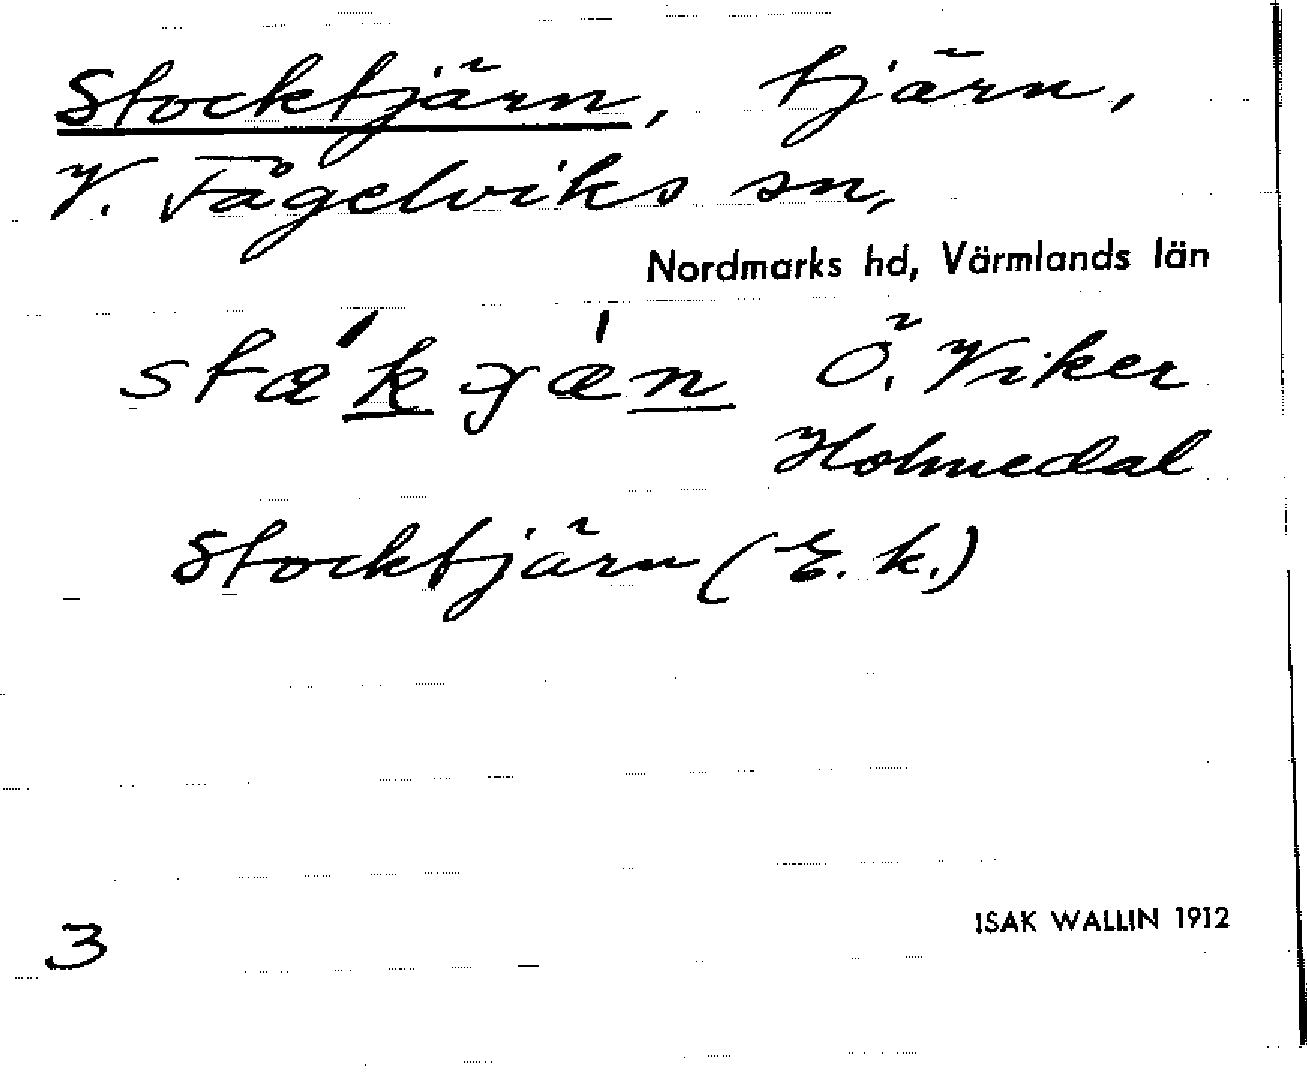 Stocktjärn, tjärn,
V. Fågelviks sn,
Nordmarks hd, Värmlands län
Ö. Viker
Holmedal
Stocktjärn (E. k.)
ISAK WALLIN 1912
3